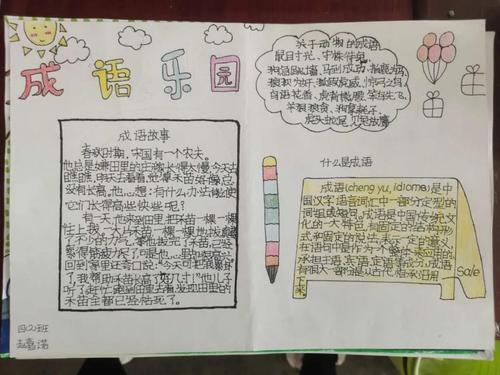 成语乐园
成语故事
春秋时期，宋国有一个农夫。
他总是嫌田里的庄稼长得太慢，今天去
瞧瞧，明天去看看，觉得禾苗好像总
没有长高。他心想：有什么办法能使
它们长得高些快些呢？
有一天，他来到田里，把禾苗一棵一棵
往上拔。一大片禾苗，一棵一棵地拔真费
了不少的力气，等他拔完了禾苗，已经
累得筋疲力尽了，可是他心里却很高兴。
回到家里还夸口说：“今天可把我累坏
了，我帮助禾苗长高了好几寸！”他儿子
听了，赶忙跑到田里去看，发现田里的
禾苗全都已经枯死了。
四(2)班
关于动物的成语
鼠目寸光、守株待兔、
狗急跳墙、马到成功、指鹿为马
狐假虎威、惊弓之鸟、
鸟语花香、虎背熊腰、笨鸟先飞、
羊狠狼贪、狗拿耗子、
虎头蛇尾、
什么是成语
成语(cheng yu, idioms)是中
国汉字语言词汇中一部分定型的
词组或短句。成语是中国传统文化
的一大特色，有固定的结构形
式和固定的说法，表示一定的意义，
在语句中是作为一个整体来应用的，
承担主语、宾语、定语等成分。成语
有很大一部分是从古代相承沿用
下来
Sale